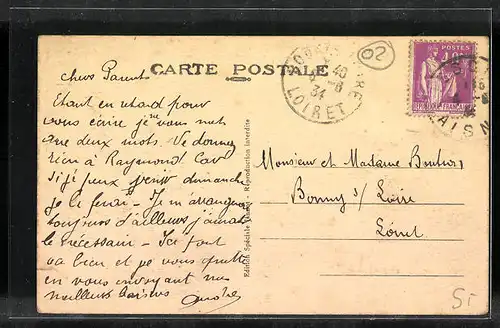 CARTE POSTALE
02
LOIRET
POSTES
Chers Parents
Etant en retard pour
vous écrire je ne vous mets
que deux mots. Ne donnez
rien à Raymond Car
si je peux venir dimanche
je le ferai - Je m arrangerai
toujours d'ailleurs j'aurai
le nécessaire - Ici tout
va bien et je vous quitte
en vous envoyant mes
meilleurs baisers
Edition Spéciale - Reproduction Interdite
Monsieur et Madame
Bonny s/ Loire
Loiret